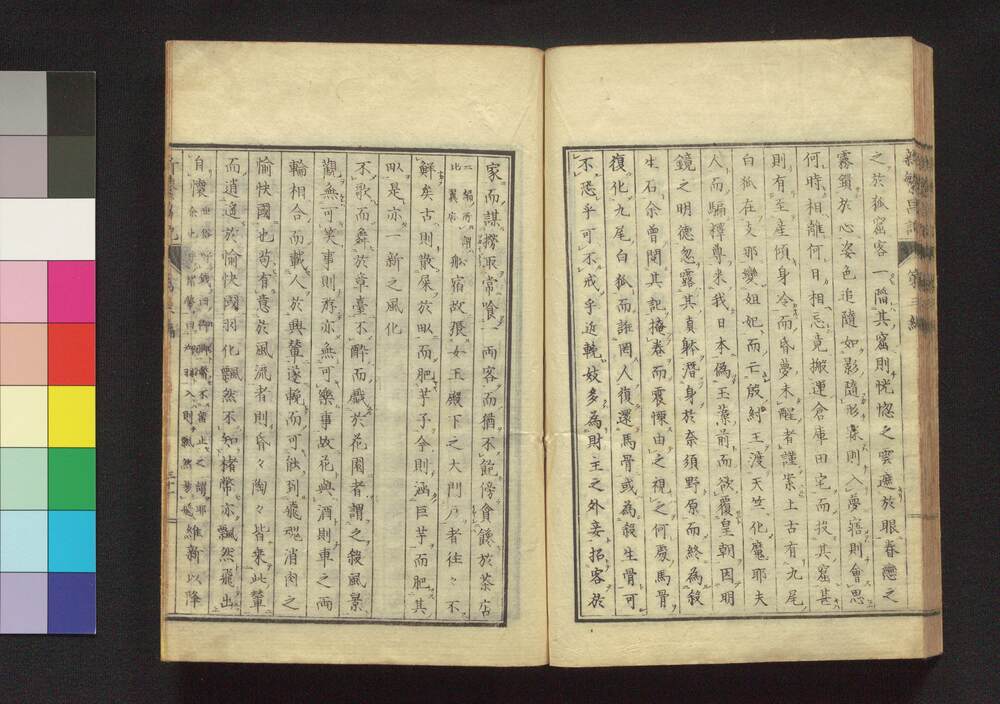 之於狐窟客一陥其窟則恍惚之雲遮於眼春戀之
霧鎖於心姿色追隨如影隨形寐則入夢寤則會思
何時相離何日相忘竟搬運倉庫田宅而投其窟甚
則有至産傾身冷而昏夢未醒者謹案上古有九尾
白狐在支那變妲妃而亡殷紂王渡天竺化魔耶夫
人而騙釋尊来我日本偽玉藻前而欲覆皇朝因明
鏡之明德忽露其真躰潜身於奈須野原而終為殺
生石余曽閲其記掩卷而震慄由之視之何処馬骨
復化九尾白狐而誑罔人復還馬骨或為殺生骨可
不恐乎可不戒乎近輓妓多為財主之外妾招客於
家而謀撈取常喰両客而猶不飽傍貪餘於茶店
比翼
鮮矣古則散屎於畝而肥芋子今則涵巨芋而肥其
畝是亦一新之風化
不歌而舞於章臺不醉而戲於花園者謂之殺風景
觀無可笑事則游亦無可樂事故花與酒則車之両
輪相合而載人於輿輦遂輓而可能到魂消肉之
愉快國也苟有意於風流者則昏々陶々皆来此輦
而逍遥於愉快國羽化飄然不知楮幣亦飄然飛出
自懐 維新以降